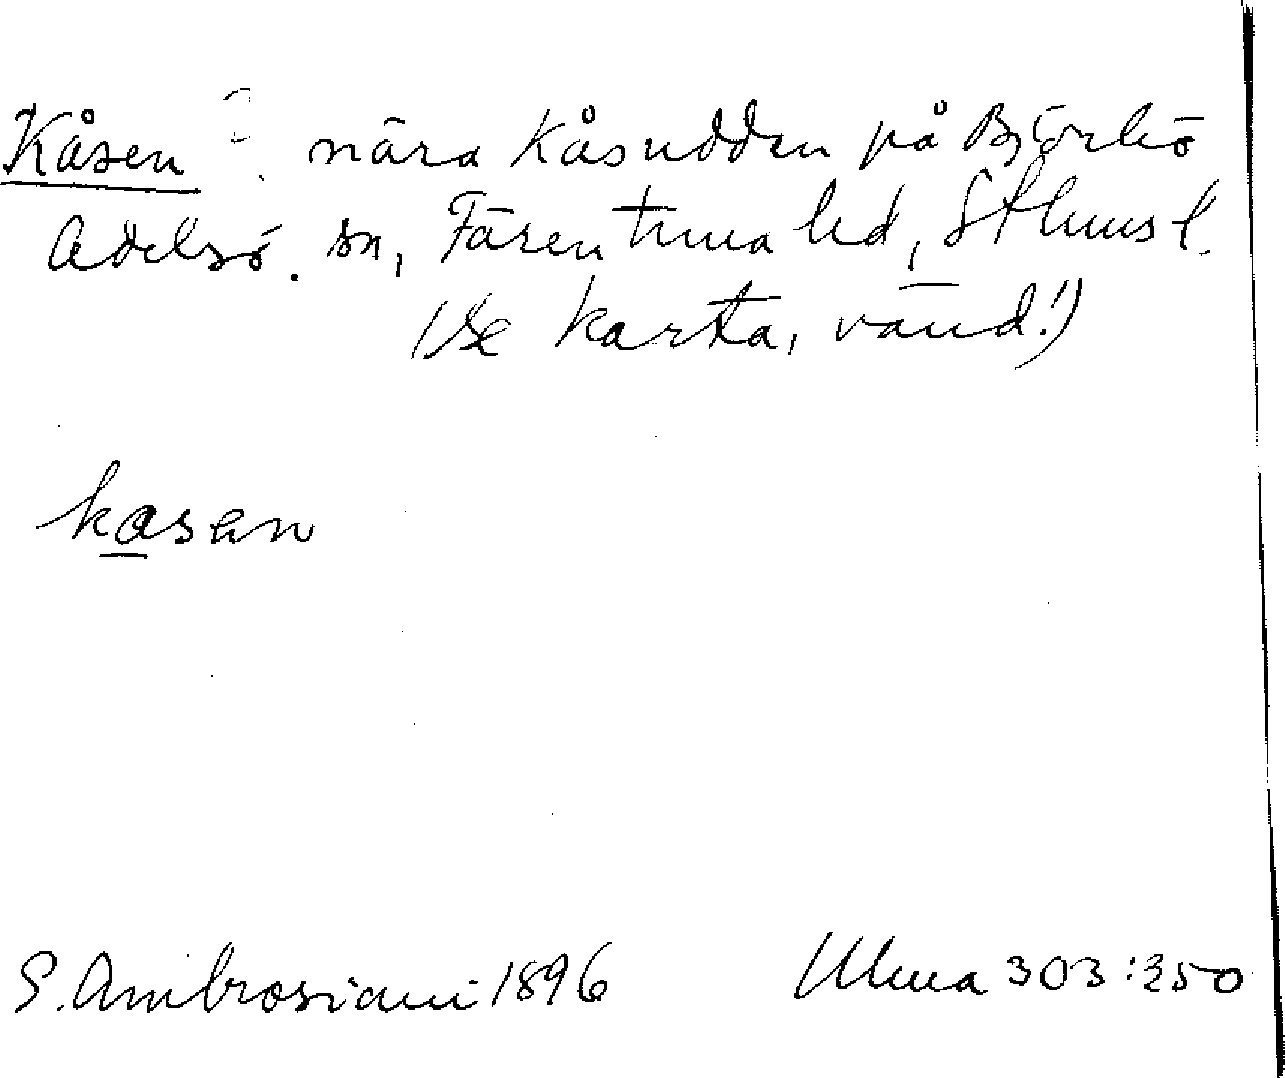 Kåsen ? nära Kåsudden på Björkö
Adelsö. sn, Färentuna hd, Sthms l.
(Se karta, vänd!)
kasen
S. Ambrosiani 1896 Uluma 303:350